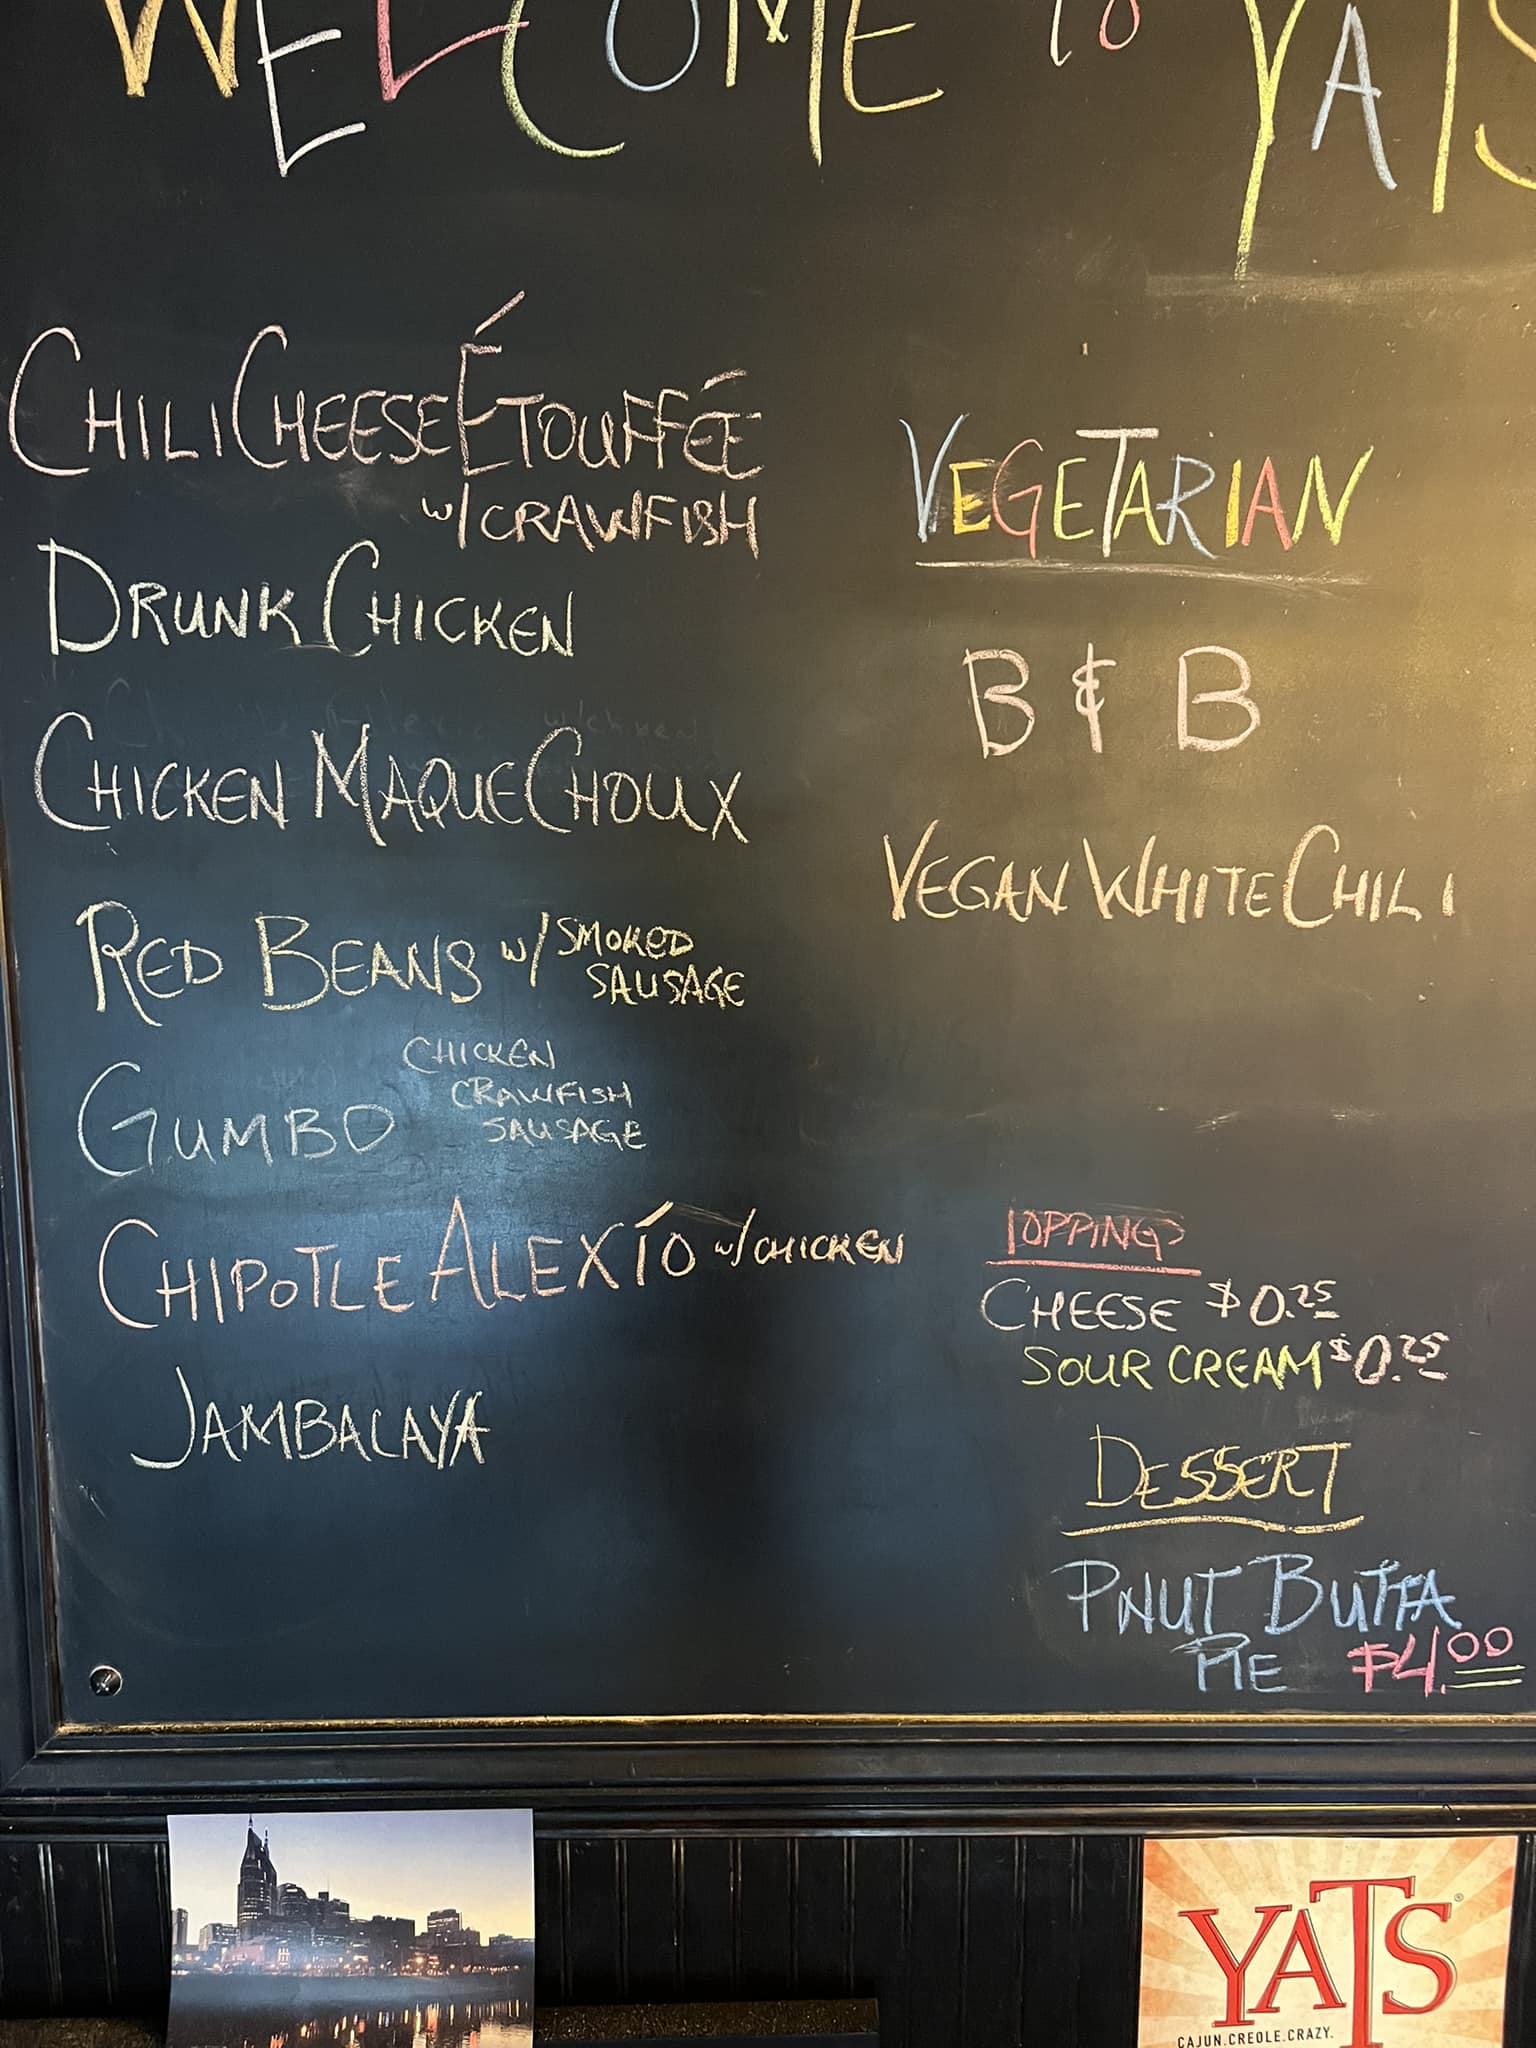 WELCOME TO YATS
CHILI CHEESE ÉTOUFFÉE
w/ CRAWFISH
DRUNK CHICKEN
CHICKEN MAQUE CHOUX
RED BEANS w/ SMOKED
SAUSAGE
GUMBO CHICKEN
CRAWFISH
SAUSAGE
CHIPOTLE ALEXÍO w/ CHICKEN
JAMBALAYA
VEGETARIAN
B & B
VEGAN WHITE CHILI
TOPPINGS
CHEESE $0.25
SOUR CREAM $0.25
DESSERT
PNUT BUTTA
PIE $4.00
YATS®
CAJUN.CREOLE.CRAZY.